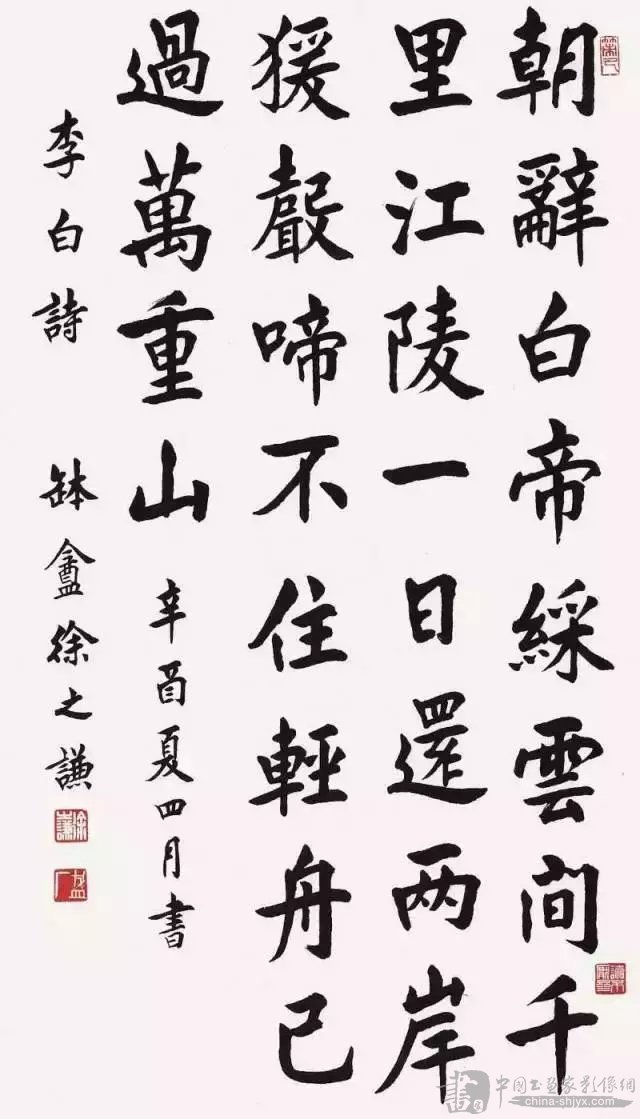 朝辭白帝綵雲間千
里江陵一日還两岸
猨聲啼不住輕舟已
過萬重山
辛酉夏四月書
李白詩
缽盦徐之謙
徐之謙
中国书画家影像網
china-shjyx.com